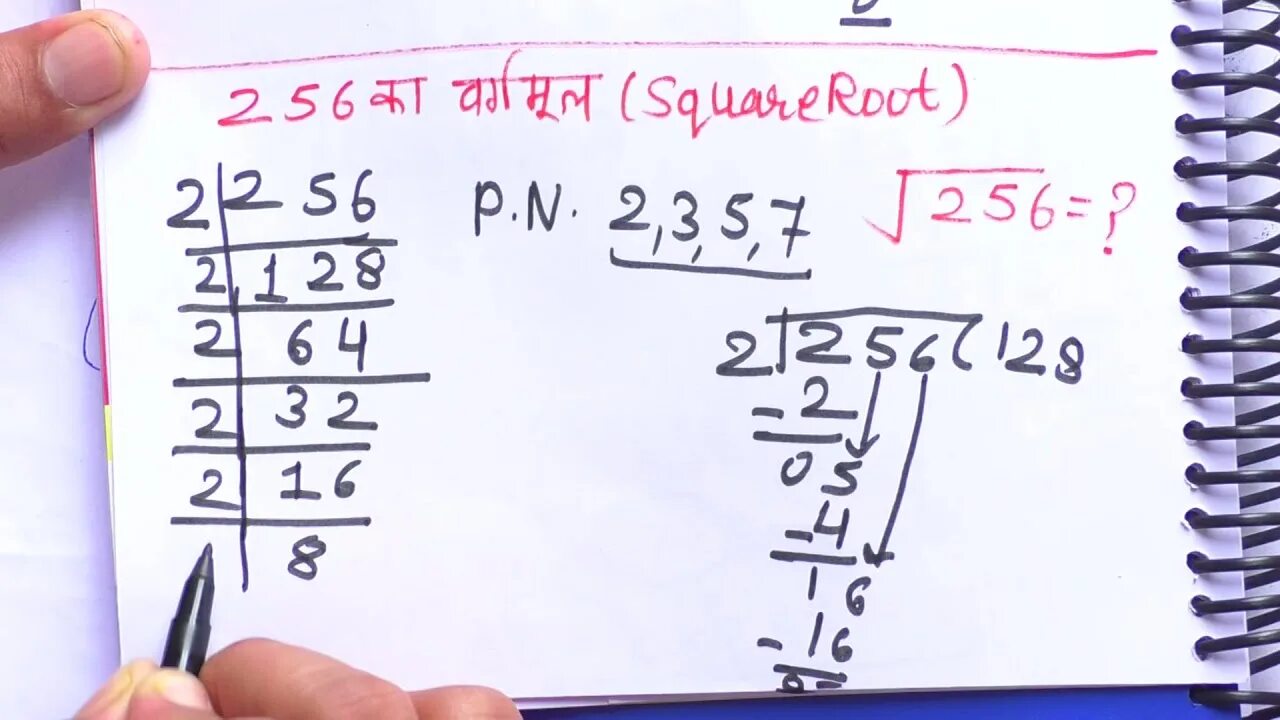 256 का वर्गमूल (Square Root)
P.N. 2,3,5,7
√256 = ?
2 | 256
2 | 128
2 | 64
2 | 32
2 | 16
8
2 ) 256 ( 128
-2
05
-4
16
-16
0